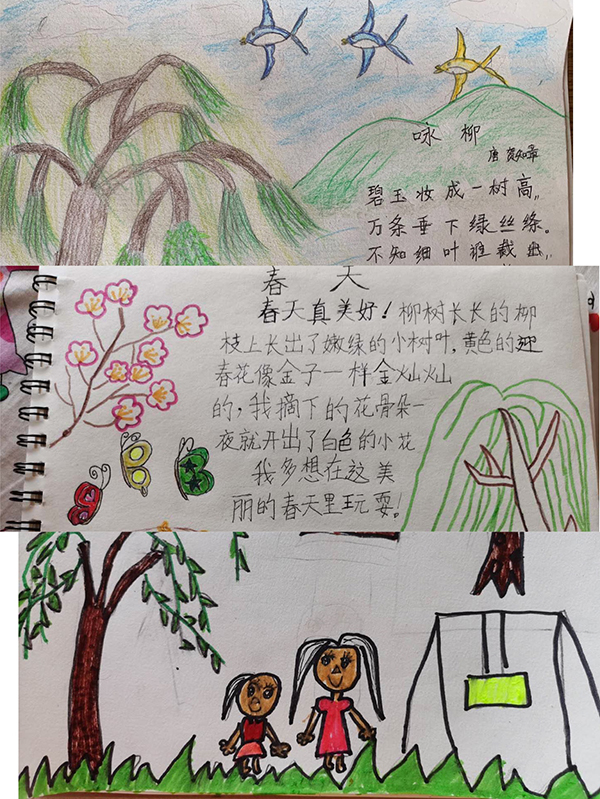 咏柳
唐 贺知章
碧玉妆成一树高,
万条垂下绿丝绦。
不知细叶谁裁出,
春天
春天真美好！柳树长长的柳
枝上长出了嫩绿的小树叶,黄色的迎
春花像金子一样金灿灿
的,我摘下的花骨朵一
夜就开出了白色的小花
我多想在这美
丽的春天里玩耍！